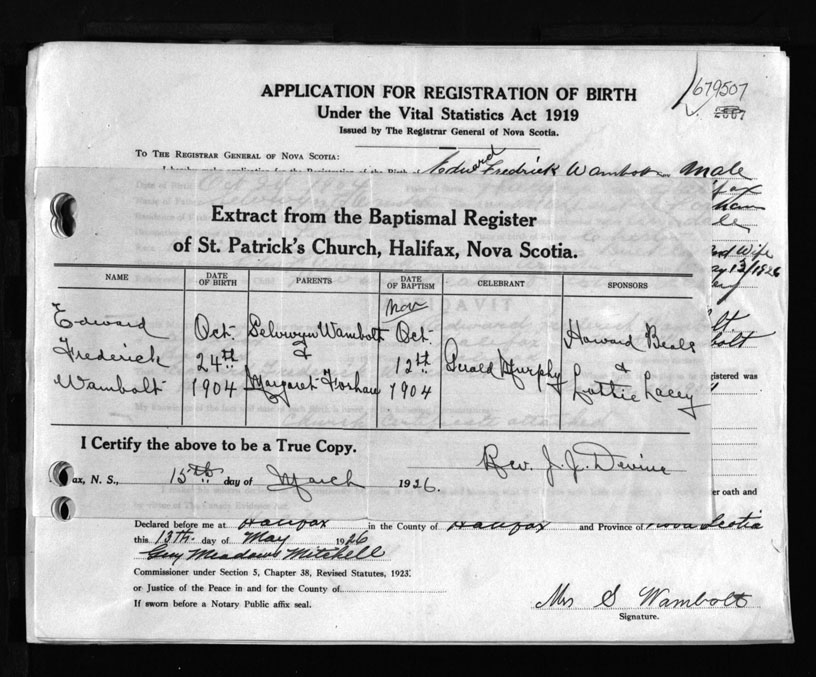 679507
2667
APPLICATION FOR REGISTRATION OF BIRTH
Under the Vital Statistics Act 1919
Issued by The Registrar General of Nova Scotia.
TO THE REGISTRAR GENERAL OF NOVA SCOTIA:
Edward Fredrick Wambolt male
Extract from the Baptismal Register
of St. Patrick's Church, Halifax, Nova Scotia.
NAME DATE OF BIRTH PARENTS DATE OF BAPTISM CELEBRANT SPONSORS
Nov
Edward Oct. Selvwyn Wambolt Oct. Howard Beals
Frederick 24th & 12th Gerald Murphy &
Wambolt 1904 Margaret 1904 Lottie Lacey
I Certify the above to be a True Copy.
Rev. J. J. Devine
ax, N. S., 15th day of March 1926.
gistered was
er oath and
Declared before me at Halifax in the County of Halifax and Province of Nova Scotia
this 13th day of May 1926
Guy Meadows Mitchell
Commissioner under Section 5, Chapter 38, Revised Statutes, 1923.
or Justice of the Peace in and for the County of
If sworn before a Notary Public affix seal.
Mrs S Wambolt
Signature.